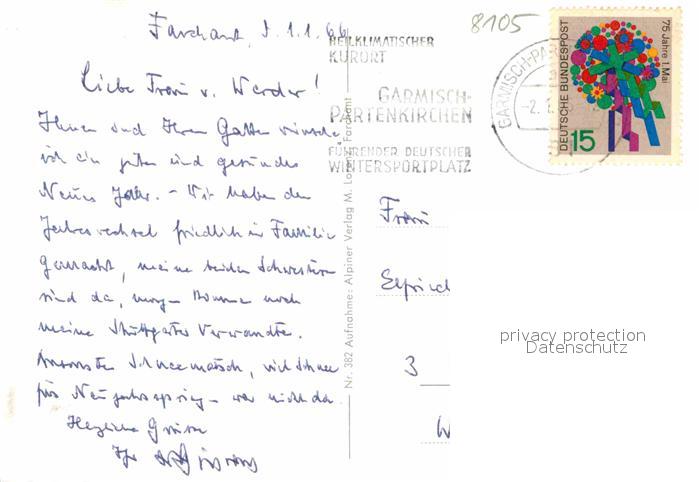 Farchant, d. 1.1.66
Liebe Frau v. Werder!
Ihnen und Ihrem Gatten wünsche
ich ein gutes und gesundes
Neues Jahr. - Wir haben den
Jahreswechsel friedlich in Familie
gemacht, meine beiden Schwestern
sind da, morgen kommen noch
meine Stuttgarter Verwandte.
Ansonsten Schneematsch, viel Schnee
fürs Neujahrsspringen war nicht da.
Herzliche Grüsse
Ihr
8105
HEILKLIMATISCHER
KURORT
GARMISCH-
PARTENKIRCHEN
FÜHRENDER DEUTSCHER
WINTERSPORTPLATZ
GARMISCH-PAR
-2.1.
DEUTSCHE BUNDESPOST
75 Jahre 1. Mai
15
Nr. 382 Aufnahme: Alpiner Verlag M. Lorenz, Farchant
Frau
3
W
privacy protection
Datenschutz